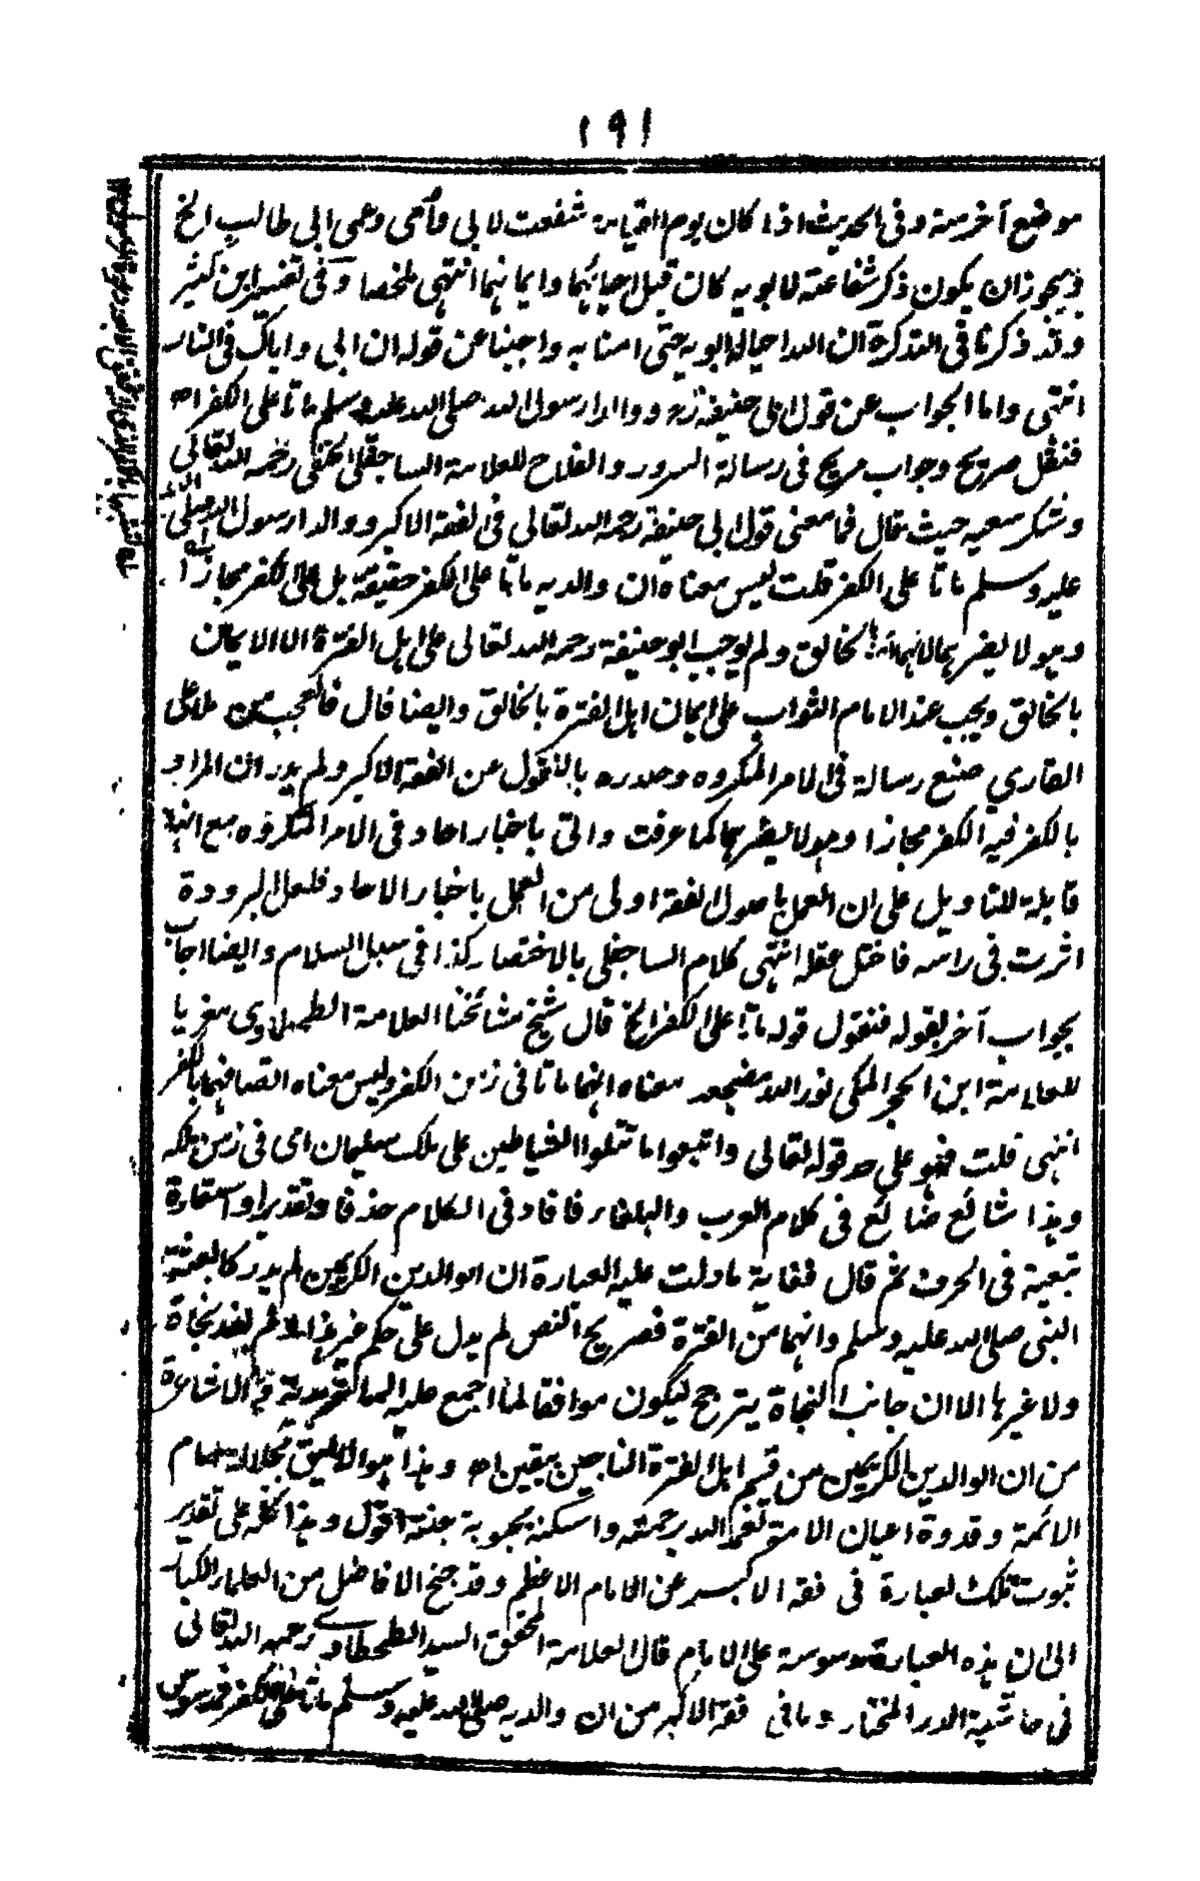 ١٩١
موضع آخر منه وفى الحديث اذا كان يوم القيامة شفعت لابى وأمى وعمى ابى طالب الخ
فيجوز ان يكون ذكر شفاعته لابويه كان قبل احيائهما وايمانهما انتهى ملخصا وفى تفسير ابن كثير
وقد ذكرنا فى التذكرة ان الله احيا له ابويه حتى امنا به واجبنا عن قوله ان ابى واباك فى النار
انتهى واما الجواب عن قول ابى حنيفة رح ووالدا رسول الله صلى الله عليه وسلم ماتا على الكفر اه
فنقل صريح وجواب مريح فى رسالة السرور والفلاح للعلامة الساجقلى الحنفى رحمه الله تعالى
وشكر سعيه حيث قال فما معنى قول ابى حنيفة رحمه الله تعالى فى الفقه الاكبر ووالدا رسول الله صلى الله
عليه وسلم ماتا على الكفر قلت ليس معناه ان والديه ماتا على الكفر حقيقة بل على الكفر مجازا
وهو لا يضر بهما لايمانهما بالخالق ولم يوجب ابو حنيفة رحمه الله تعالى على اهل الفترة الا الايمان
بالخالق ويجب عند الامام الثواب على ايمان اهل الفترة بالخالق وايضا قال فالعجب من ملا على
القاري صنع رسالة فى الامر المكروه وصدره بالنقول عن الفقه الاكبر ولم يدر ان المراد
بالكفر فيه الكفر مجازا وهو لا يضر بهما كما عرفت واتى باخبار احاد فى الامر المكروه مع انها
قابلة للتاويل على ان العمل باصول الفقه اولى من العمل باخبار الاحاد فلعل البرودة
اثرت فى راسه فاختل عقله انتهى كلام الساجقلى بالاختصار كذا فى سبل السلام وايضا اجاب
بجواب آخر بقوله فنقول قوله ماتا على الكفر الخ قال شيخ مشائخنا العلامة الطحطاوى مغريا
للعلامة ابن الحجر المكى نور الله مضجعه معناه انهما ماتا فى زمن الكفر وليس معناه اتصافهما بالكفر
انتهى قلت فهو على حد قوله تعالى واتبعوا ما تتلوا الشياطين على ملك سليمان اى فى زمن ملكه
وهذا شائع ضائع فى كلام العرب والبلغاء فافاد فى الكلام حذفا وتقديرا او استعارة
تبعية فى الحرف ثم قال فغاية ما دلت عليه العبارة ان الوالدين الكريمين لم يدركا بعثة
النبى صلى الله عليه وسلم وانهما من الفترة فصريح النص لم يدل على حكم غير هذا فلم يفد نجاة
ولا غيرها الا ان جانب النجاة يترجح ليكون موافقا لما اجمع عليه الماتريدية والاشاعرة
من ان الوالدين الكريمين من قسم اهل الفترة الناجين بيقين اه وهذا هو الاليق بجلالة امام
الائمة وقدوة اعيان الامة تغمد الله برحمته واسكنه بحبوبة جنته اقول وهذا كله على تقدير
ثبوت تلك العبارة فى فقه الاكبر عن الامام الاعظم وقد جنح الافاضل من العلماء الكبار
الى ان هذه العبارة مدسوسة على الامام قال العلامة المحقق السيد الطحطاوى رحمه الله تعالى
فى حاشية الدر المختار وما فى فقه الاكبر من ان والديه صلى الله عليه وسلم ماتا على الكفر فمدسوس